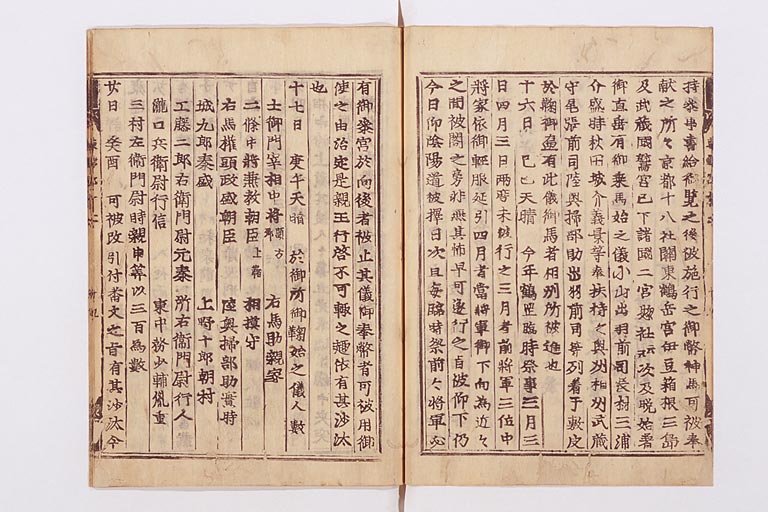 持参申書給御覧之後被施行之御幣神馬可被奉
献之所々京都十八社関東鶴岳宮伊豆箱根三嶋
及武蔵國鷲宮已下諸國二宮惣社次及晩始著
御直垂有御乗馬始之儀小山出羽前司長村三浦
介盛時秋田城介義景等在扶持之奥州相州武蔵
守尾張前司陸奥掃部助出羽前司等列着于敷皮
於鞠御壷有此儀御馬者相州所被進也
十六日己巳天晴今年鶴岳臨時祭事三月三
日四月三日両度未被行之三月者前将軍三位中
将家依御軽服延引四月者當将軍御下向為近々
之間被閣之旁非無其怖早可遂行之旨被仰下仍
今日仰陰陽道被擇日次且毎臨時祭前々将軍家
有御參宮於向後者被止其儀御奉幣者可被用御
使之由治定是親王行啓不可輙之趣依有其沙汰
也
十七日庚午天晴於御所御鞠始之儀人數
土御門宰相中将顕方卿右馬助親家
二條中将兼教朝臣上鞠相模守
右馬權頭政盛朝臣陸奥掃部助實時
城九郎泰盛上野十郎朝村
工藤二郎右衛門尉元泰所右衛門尉行人
瀧口兵衛尉行信東中務少輔胤重
三村左衛門尉時親申算以三百為數
廿日癸酉可被改引付番文之旨有其沙汰今